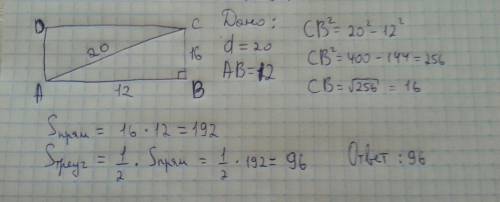 D C
20
16
A 12 B
Дано:
d = 20
AB = 12
CB² = 20² - 12²
CB² = 400 - 144 = 256
CB = √256 = 16
Sпрям = 16 · 12 = 192
Sтреуг = 1/2 · Sпрям = 1/2 · 192 = 96
Ответ: 96